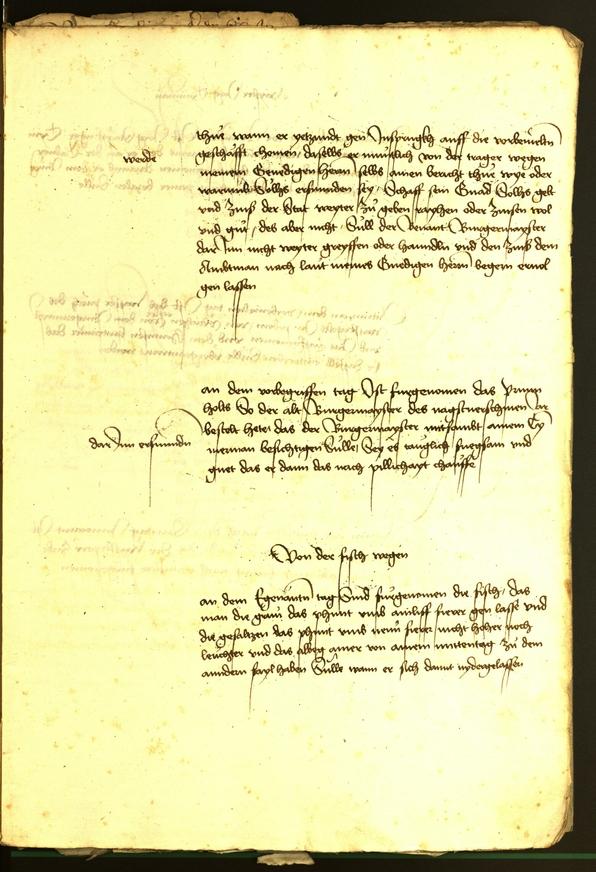 thue wann er yetzundt gen Insprugkh auff die vorbenentn
werde
geschäfft chomen daselbs er muntlich von der trager wegen
meinem Genedigen herrn selbs ainen bericht thue wye oder
warumb Solhs erfunden sey, Schaff sein Gnad Solhs gelt
und Zinß der Stat weyter zu geben raychen oder Zinsen wol
und gut, des aber nicht, Sull der Burgermayster
dar Inn nicht weyter greyffen oder hanndln und den Zinß dem
Ambtman nach laut meines Gnedigen herrn begern ervol
gen lassen
an dem vorbegriffen tag Ist furgenomen das
holts So der alt Burgermayster des nagstverschinen Jar
bestelt hete das der Burgermayster mitsambt ainem Cy
dar Inn erfunden
merman besichtigen Sulle, Sey es tauglich fuegsam und
guet das er dann das nach pillichayt chauffe
Von der fisch wegen
an dem Egenantn tag Sind furgenomen die fisch, das
man die das phunt umb ainliff fierer geen lasse und
die gesaltzen das phunt umb newn fierer nicht hoher noch
und das alweg ainer von ainem mittentag zu dem
anndern fayl haben Sulle wann er sich damit nydergelassen